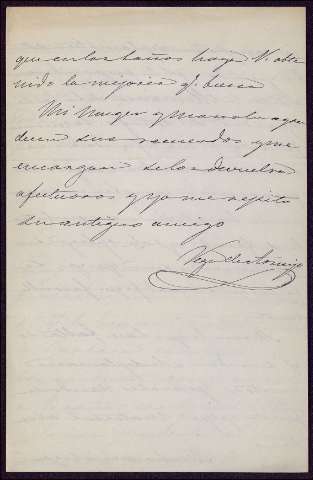 que en los baños haya V. obte
nido la mejoria q. busca
Mi muger y Manolo agra
decen sus recuerdos y me
encargan se los devuelva
afectuosos y yo me repito
su antiguo amigo
Vega de Armijo